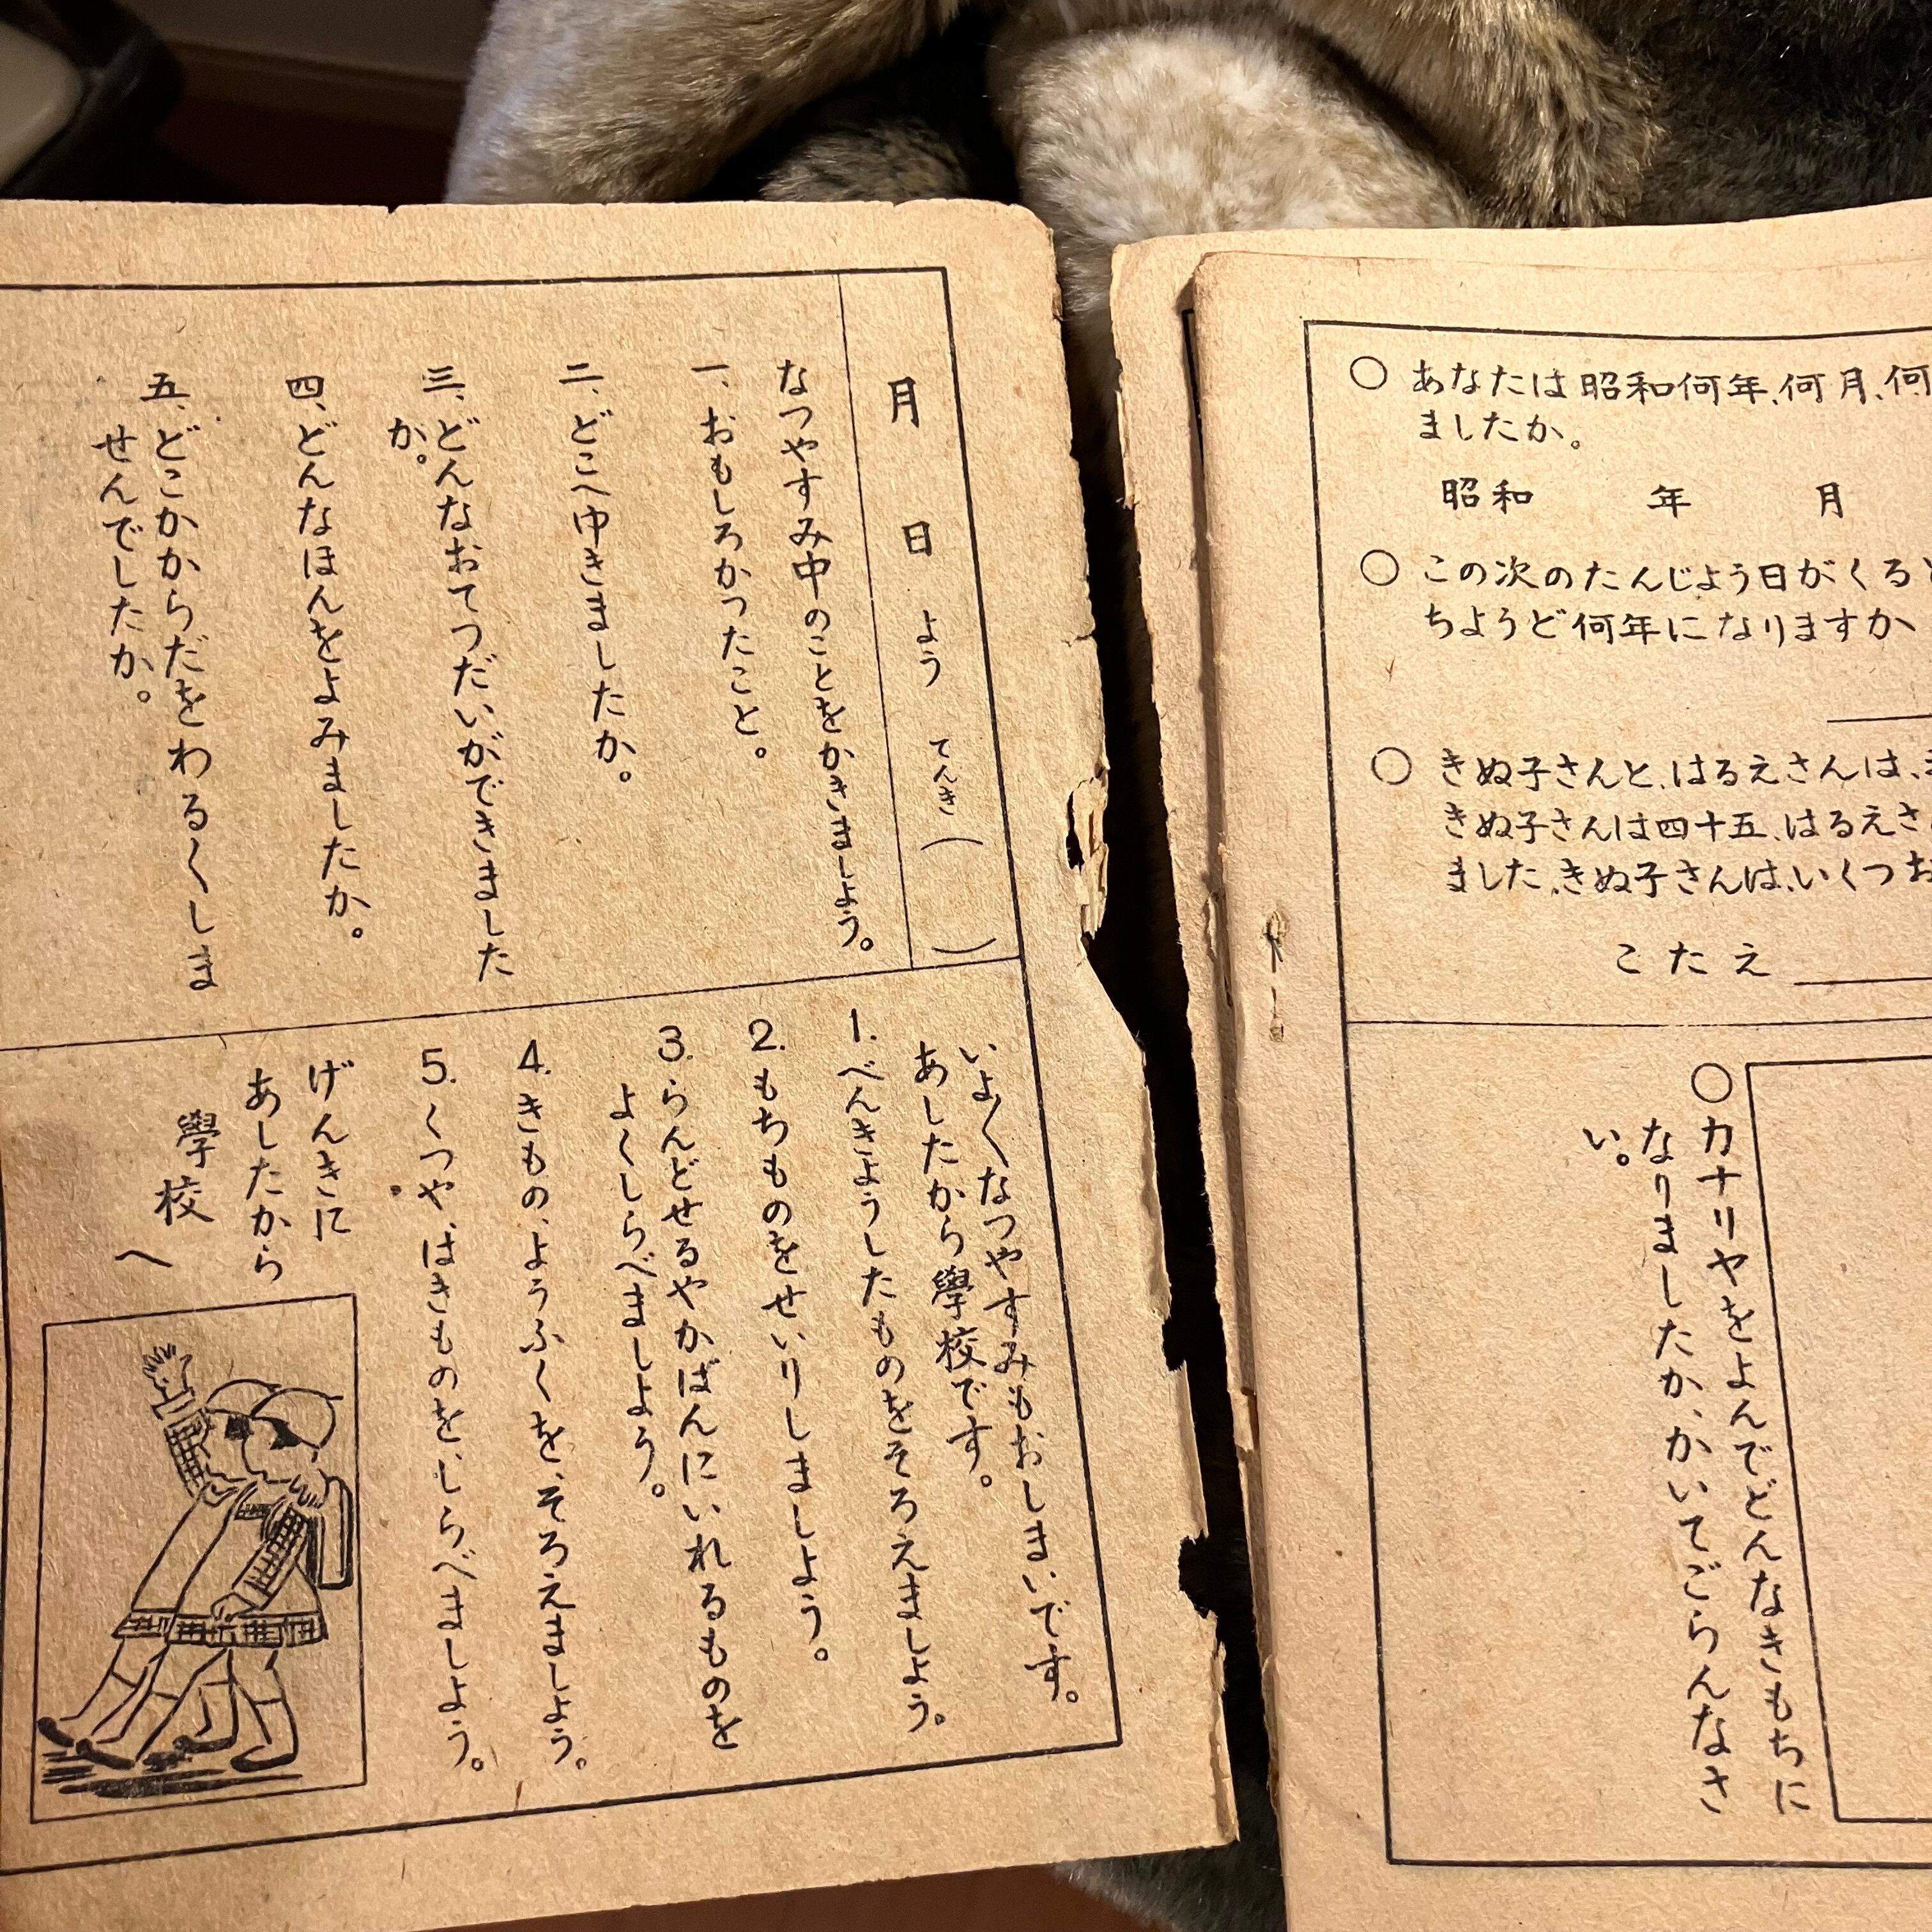 月 日 よう てんき( )
なつやすみ中のことをかきましょう。
一、おもしろかったこと。
二、どこへゆきましたか。
三、どんなおてつだいができました
か。
四、どんなほんをよみましたか。
五、どこかからだをわるくしま
せんでしたか。
いよ〱なつやすみもおしまいです。
あしたから學校です。
1. べんきょうしたものをそろえましょう。
2. もちものをせいりしましよう。
3. らんどせるやかばんにいれるものを
よくしらべましよう。
4. きもの、ようふくを、そろえましょう。
5. くつや、はきものを、しらべましよう。
げんきに
あしたから
學校
へ
○ あなたは昭和何年、何月、何
ましたか。
昭和 年 月
○ この次のたんじよう日がくると
ちようど何年になりますか
○ きぬ子さんと、はるえさんは、
きぬ子さんは四十五、はるえさ
ました、きぬ子さんは、いくつお
こたえ
○カナリヤをよんでどんなきもちに
なりましたか、かいてごらんなさ
い。